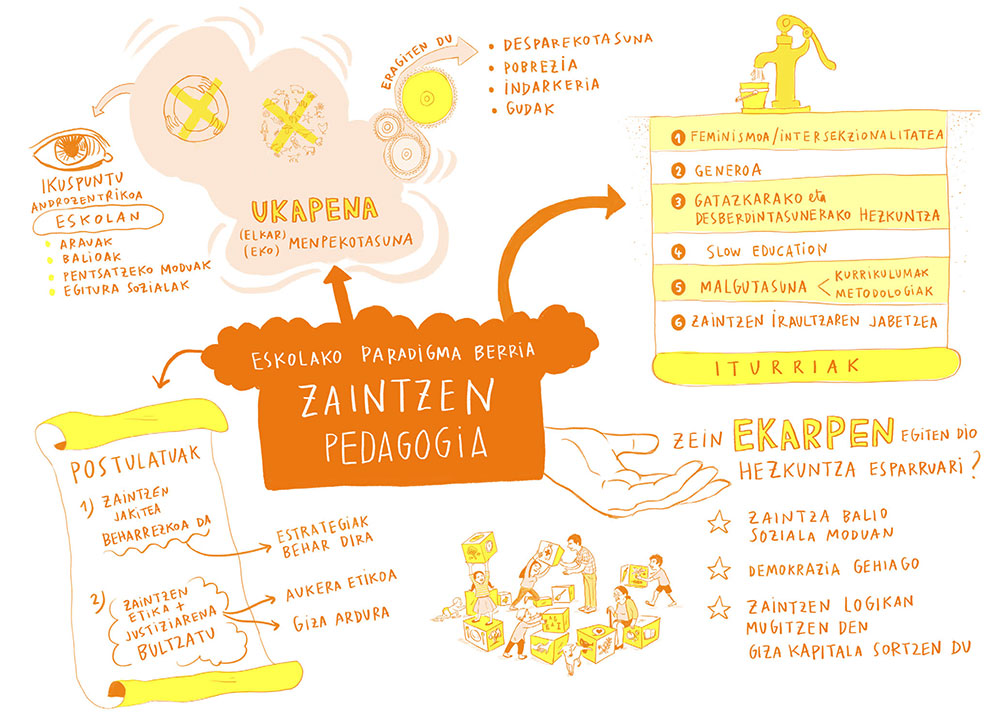 ERAGITEN DU
• DESPAREKOTASUNA
• POBREZIA
• INDARKERIA
• GUDAK
IKUSPUNTU
ANDROZENTRIKOA
ESKOLAN
• ARAUAK
• BALIOAK
• PENTSATZEKO MODUAK
• EGITURA SOZIALAK
UKAPENA
(ELKAR)
(EKO) MENPEKOTASUNA
1 FEMINISMOA/INTERSEKZIONALITATEA
2 GENEROA
3 GATAZKARAKO eta
DESBERDINTASUNERAKO HEZKUNTZA
4 SLOW EDUCATION
5 MALGUTASUNA < KURRIKULUMAK
METODOLOGIAK
6 ZAINTZEN IRAULTZAREN JABETZEA
ITURRIAK
ESKOLAKO PARADIGMA BERRIA
ZAINTZEN
PEDAGOGIA
POSTULATUAK
1) ZAINTZEN
JAKITEA
BEHARREZKOA DA
ESTRATEGIAK
BEHAR DIRA
2) ZAINTZEN
ETIKA +
JUSTIZIARENA
BULTZATU
AUKERA ETIKOA
GIZA ARDURA
ZEIN EKARPEN EGITEN DIO
HEZKUNTZA ESPARRUARI?
ZAINTZA BALIO
SOZIALA MODUAN
DEMOKRAZIA GEHIAGO
ZAINTZEN LOGIKAN
MUGITZEN DEN
GIZA KAPITALA SORTZEN DU